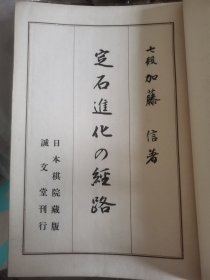 七段 加藤 信著
定石進化の經路
日本棋院藏版
誠文堂刊行